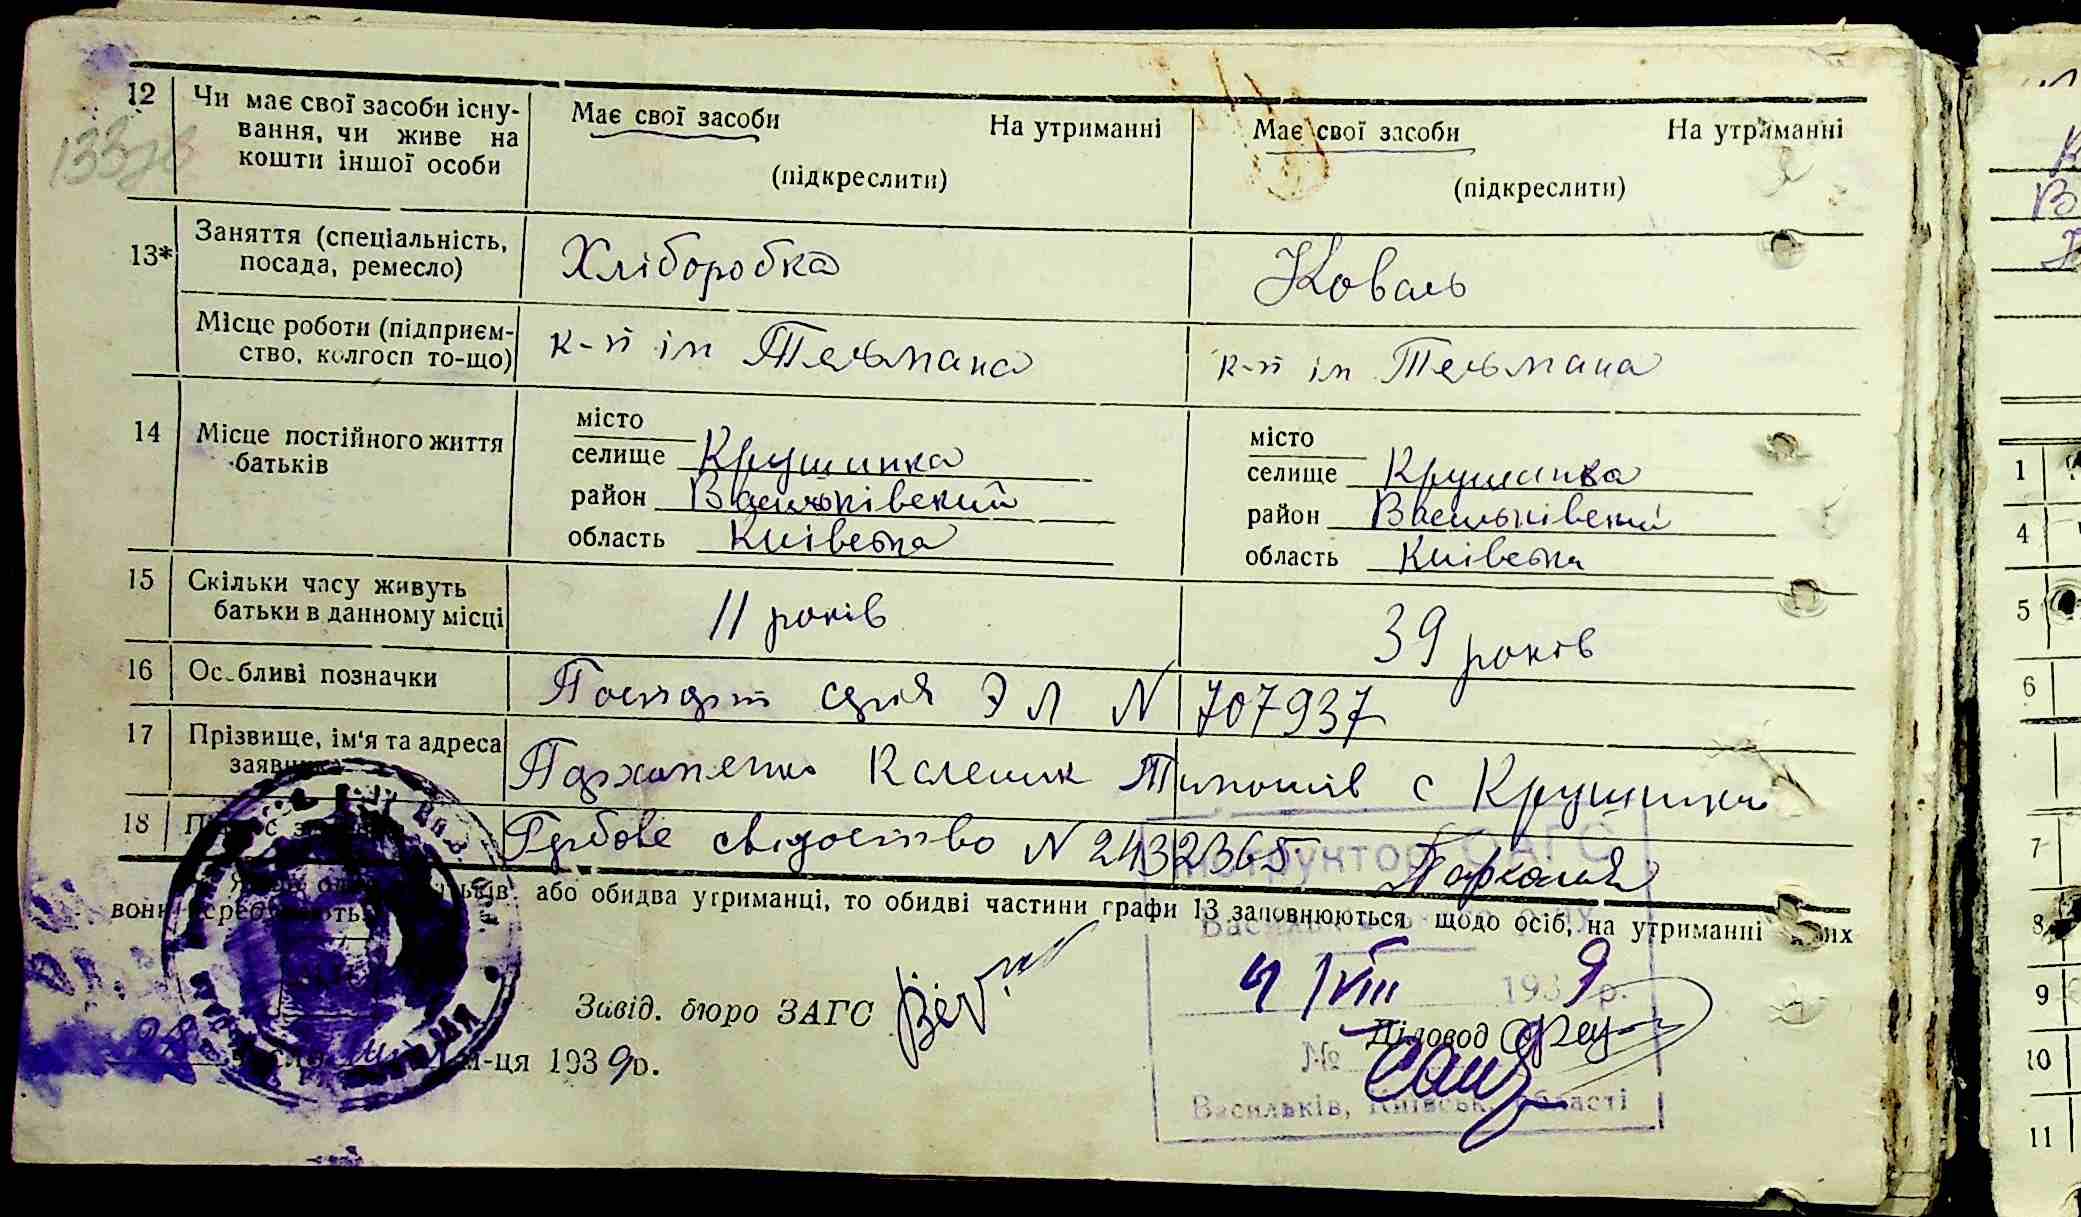 12 Чи має свої засоби існу-
вання, чи живе на
кошти іншої особи
Має свої засоби На утриманні
(підкреслити)
Має свої засоби На утриманні
(підкреслити)
13* Заняття (спеціальність,
посада, ремесло)
Хліборобка
Коваль
Місце роботи (підприєм-
ство, колгосп то-що)
к-п ім Тельмана
к-п ім Тельмана
14 Місце постійного життя
батьків
місто
селище Крушинка
район Васильківский
область Київська
місто
селище Крушинка
район Васильківский
область Київська
15 Скільки часу живуть
батьки в данному місці
11 років
39 років
16 Ос бливі позначки
Паспорт серія ЭЛ N 707937
17 Прізвище, ім'я та адреса
заявника
Пархоменко Калєник Тимошів с Крушинка
18
Гербове свідоство N 2432365
або обидва утриманці, то обидві частини графи 13 заповнюються щодо осіб, на утриманні яких
вони
Інструктор ЗАГС
4 VIII 1939 р.
Завід. бюро ЗАГС
Діловод
№
м-ця 1939 р.
Васильків, Київськ. області
1
4
5
6
7
8
9
10
11